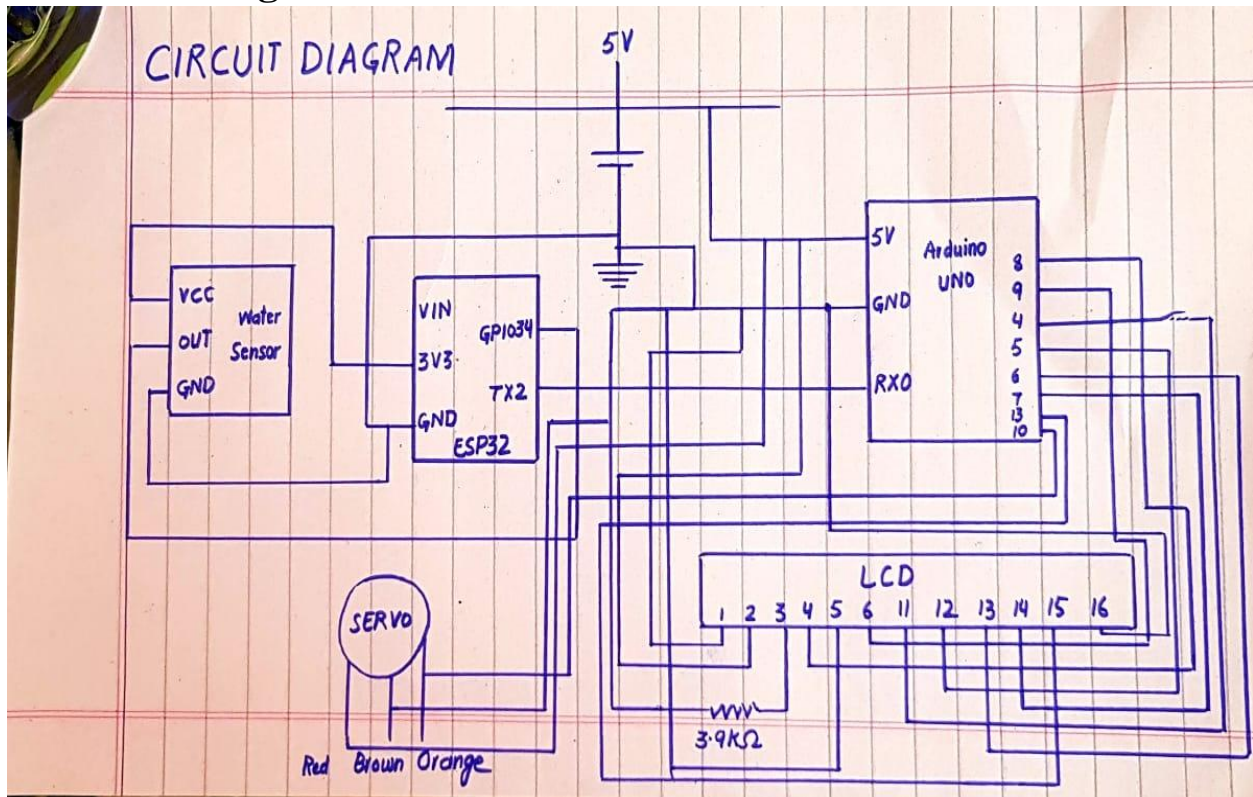 CIRCUIT DIAGRAM
5V
VCC
OUT
GND
Water
Sensor
VIN
3V3
GND
GPIO34
TX2
ESP32
5V
GND
RX0
Arduino
UNO
8
9
4
5
6
7
13
10
LCD
1 2 3 4 5 6 11 12 13 14 15 16
SERVO
3.9KΩ
Red Brown Orange